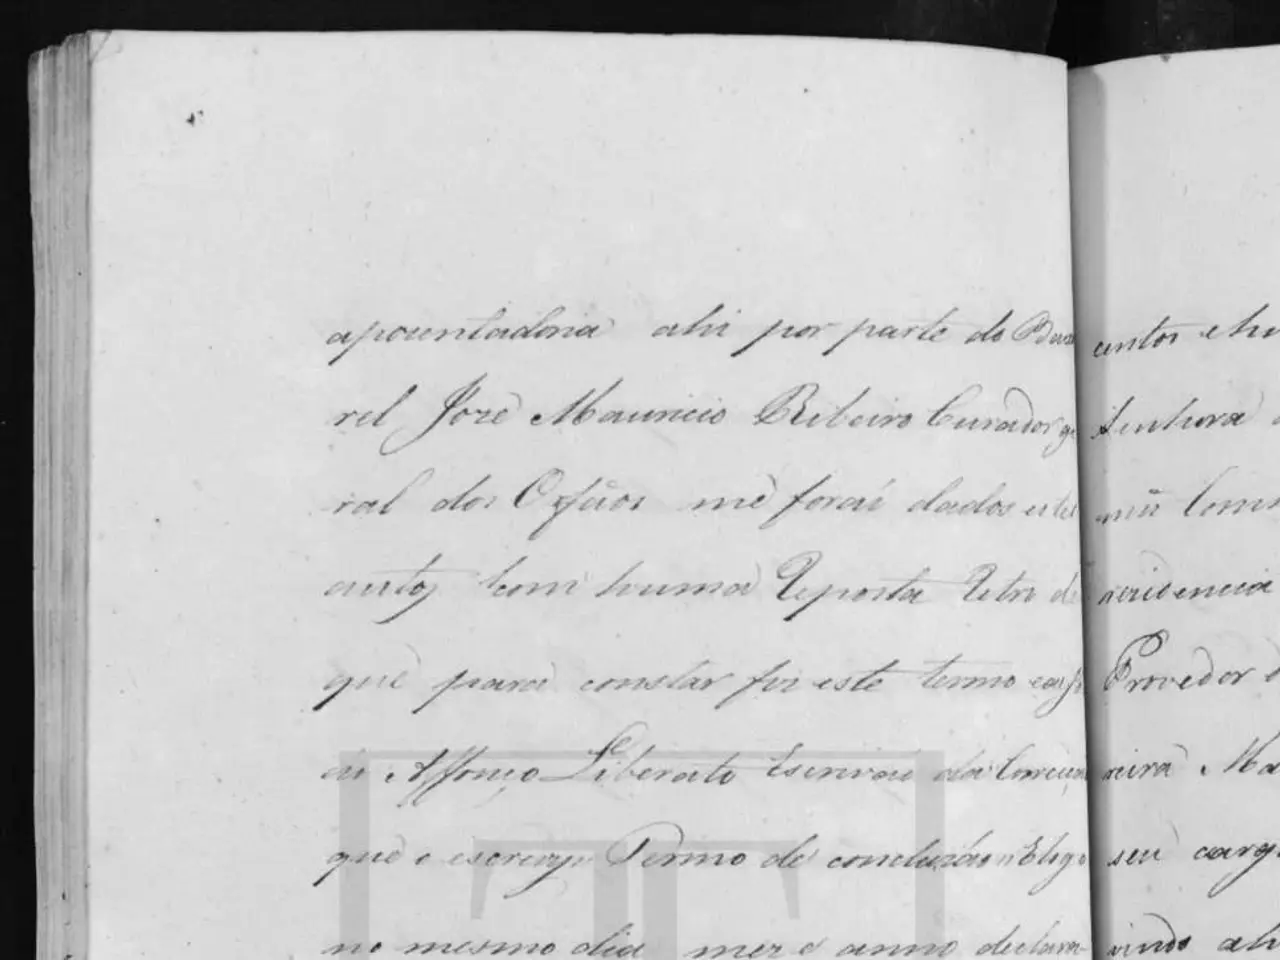 apouentadoria ahi por parte do Bac
rel Jozè Mauricio Ribeiro Curador ge
ral dos Orfãos mè foraí dados estes
autos com huma Reposta Retro de
què para constar fiz este termo
eu Affonço Liberato Escrivaõ da Correiçaõ
què o escrevy Termo de concluzão E logo
no mesmo dia mez e anno declara
autos e hu
senhora
mũ Com
rezidencia
Provedor
reira Ma
seu carg
vindo ahi